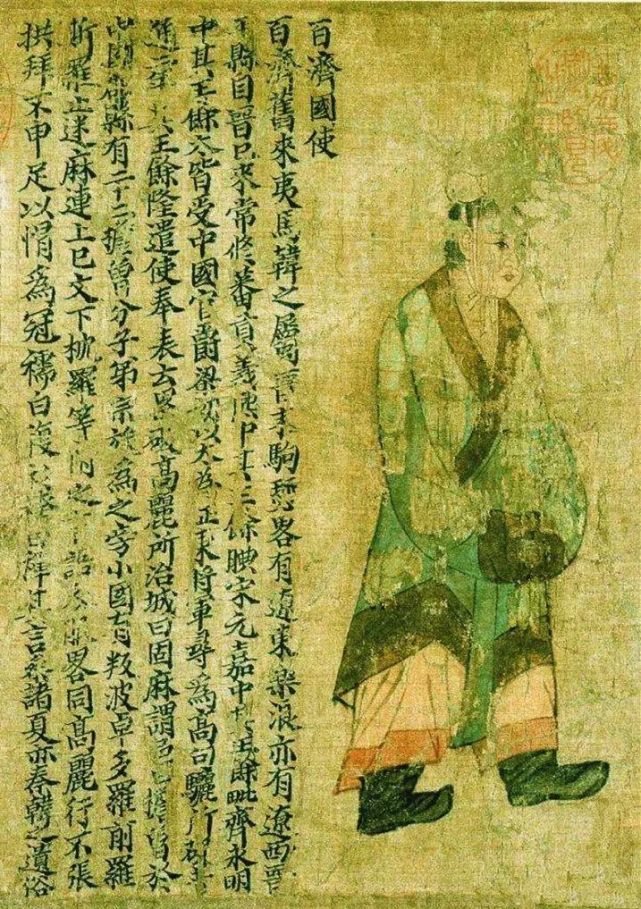 百濟國使
百濟舊來夷馬韓之屬晉末駒驪畧有遼東樂浪亦有遼西晉
縣自晉已來常修蕃貢義熙中其王餘腆宋元嘉中其王餘毗齊永明
中其王餘太皆受中國官爵梁初以太為正東將軍尋為高句驪所破
通二年其王餘隆遣使奉表云累破高麗所治城曰固麻謂邑曰檐魯於
中國郡縣有二十二檐魯分子弟宗族為之旁小國有叛波卓多羅前羅
斯羅止迷麻連上巳文下枕羅等附之言語衣服畧同高麗行不張
拱拜不申足以帽為冠襦曰複衫袴曰褌其言參諸夏亦秦韓之遺俗